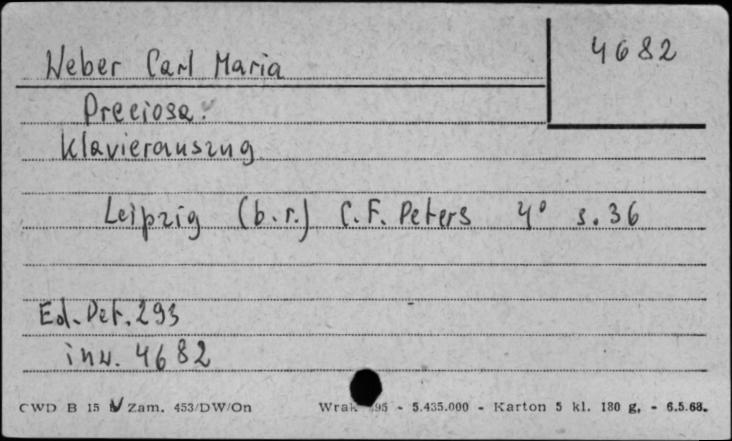 4682
Weber Carl Maria
Preciosa.
Klavierauszug
Leipzig (b.r.) C.F. Peters 4° s. 36
Ed. Pet. 293
inw. 4682
CWD B 15 Zam. 453/DW/On Wrak 95 - 5.435.000 - Karton 5 kl. 180 g, - 6.5.68.